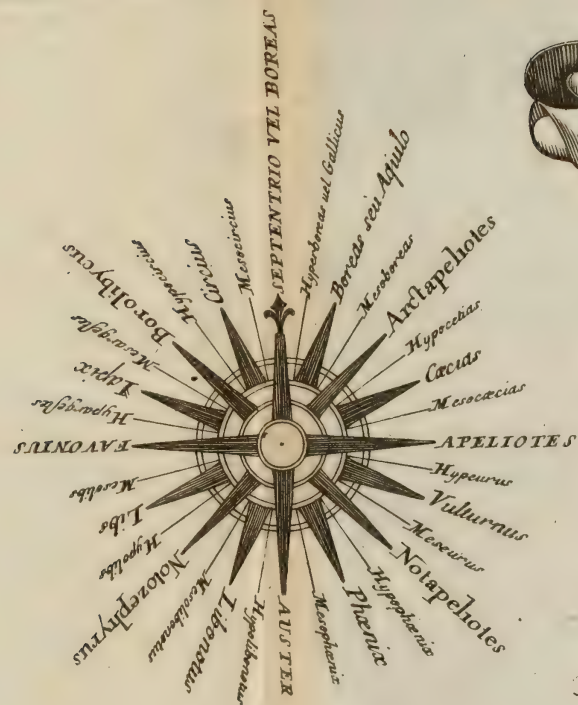 SEPTENTRIO VEL BOREAS
Hyperboreas vel Gallicus
Boreas seu Aquilo
Mesoboreas
Arctapeliotes
Hypocæcias
Cæcias
Mesocæcias
APELIOTES
Hypeurus
Vulturnus
Meseurus
Notapeliotes
Hypophœnix
Phœnix
Mesophœnix
AUSTER
Hypolibonotus
Libonotus
Mesolibonotus
Notozephyrus
Hypolibs
Libs
Mesolibs
FAVONIUS
Hypargestes
Iapix
Mesargestes
Borolibycus
Hypocircius
Circius
Mesocircius